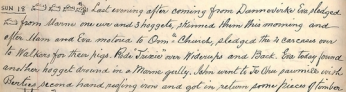 SUN 18 Last evening after coming from Dannevirke Eva sledged
from Marni one ewe and 3 hoggets, skinned them this morning and
after Mum and Eva motored to Church, sledged the 4 carcases over
to Walkers for their pigs. Rode "Trixie" over Widerups and Back. Eva today found
another hogget around in a Marni gully. John went to Oru papermill with
Parties, second hand roofing iron and got in return some pieces of timber.